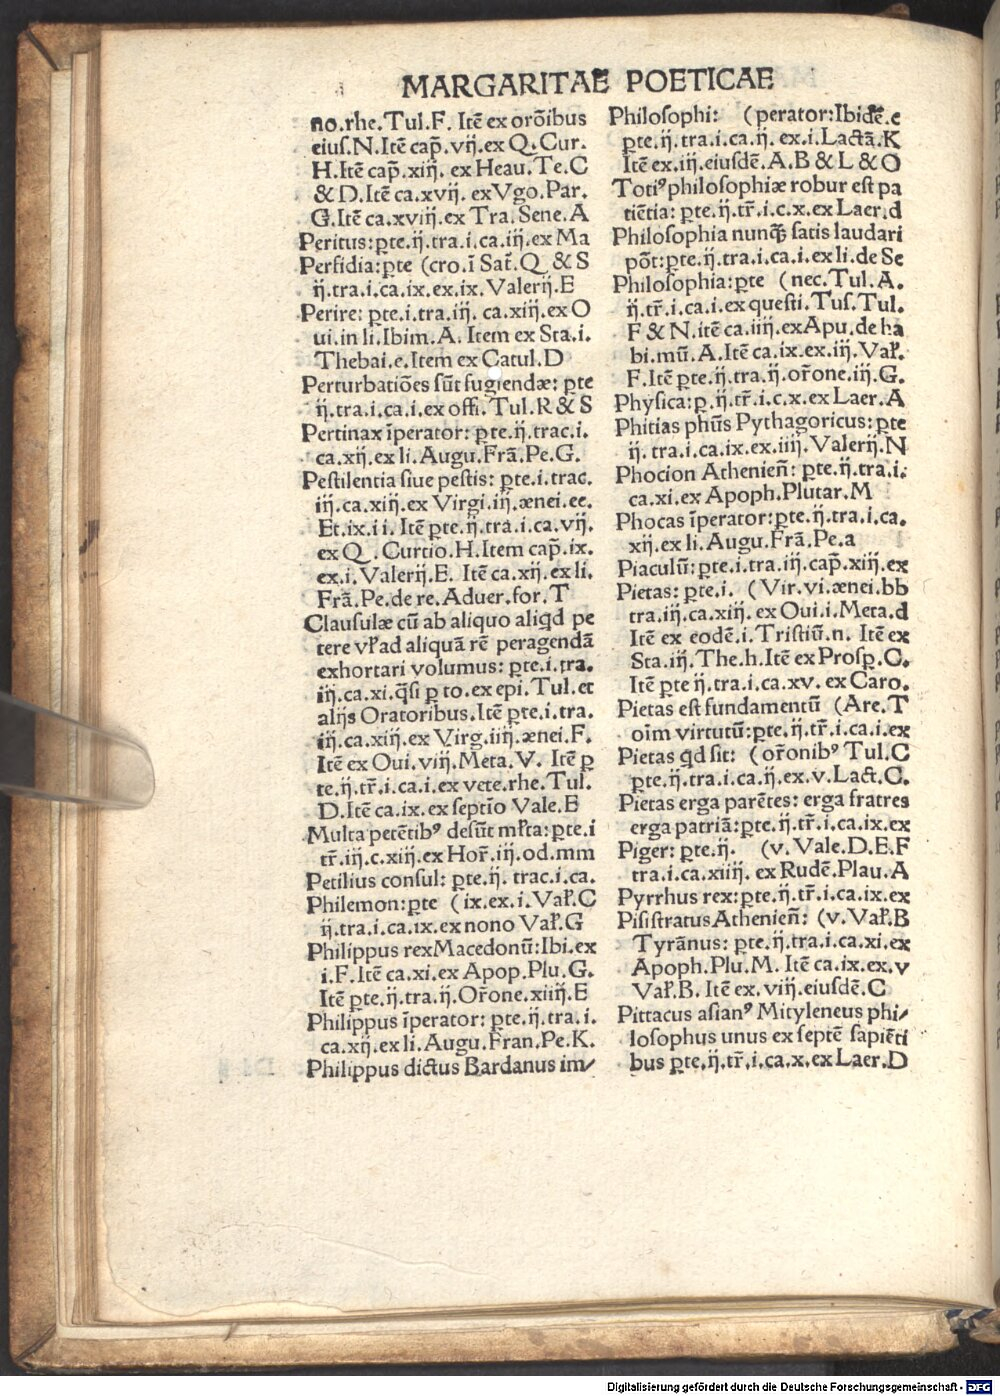 MARGARITAE POETICAE
no.rhe.Tul.F. Itē ex orōibus
eiuſ.N.Itē cap̄.vij.ex Q.Cur.
H.Itē cap̄.xiij. ex Heau.Te.C
& D.Itē ca.xvij. ex Vgo.Par.
G.Itē ca.xviij.ex Tra.Sene.A
Peritus:p̲te.ij.tra.i.ca.iij.ex Ma
Perfidia:p̲te (cro.ī Sat̄.Q & S
ij.tra.i.ca.ix.ex.ix.Valerij.E
Perire: p̲te.i.tra.iij. ca.xiij.ex O
ui.in li.Ibim.A. Item ex Sta.i.
Thebai.e.Item ex Catul.D
Perturbatiōes ſūt fugiendæ: p̲te
ij.tra.i.ca.i.ex offi.Tul.R & S
Pertinax īperator: p̲te.ij.trac.i.
ca.xij.ex li.Augu.Frā.Pe.G.
Peſtilentia ſiue peſtis: p̲te.i.trac.
iij.ca.xiij.ex Virgi.iij.ænei.ee.
Et.ix.ii. Itē p̲te.ij.tra.i.ca.vij.
ex Q .Curtio.H.Item cap̄.ix.
ex.i.Valerij.E. Itē ca.xij.ex li.
Frā.Pe.de re.Aduer.for.T
Clauſulæ cū ab aliquo aliqd pe
tere vl̓ ad aliquā rē peragendā
exhortari volumus: p̲te.i.tra.
iij.ca.xi.q̄ſi p̲ to.ex epi.Tul.et
alijs Oratoribus.Itē p̲te.i.tra.
iij.ca.xiij.ex Virg.iiij.ænei.F.
Itē ex Oui.viij.Meta.V. Itē p̲
te.ij.tr̄.i.ca.i.ex vete.rhe.Tul.
D.Itē ca.ix.ex ſeptīo Vale.E
Multa petētibꝰ deſūt ml̓ta:p̲te.i
tr̄.iij.c.xiij.ex Hor̄.iij.od.mm
Petilius conſul: p̲te.ij. trac.i.ca.
Philemon:p̲te (ix.ex.i.Val̓.C
ij.tra.i.ca.ix.ex nono Val̓.G
Philippus rex Macedonū:Ibi.ex
i.F.Itē ca.xi.ex Apop.Plu.G.
Itē p̲te.ij.tra.ij.Or̄one.xiij.E
Philippus īperator: p̲te.ij.tra.i.
ca.xij.ex li.Augu.Fran.Pe.K.
Philippus dictus Bardanus im/
Philoſophi: (perator:Ibidē.e
p̲te.ij.tra.i.ca.ij. ex.i.Lactā.K
Itē ex.iij.eiuſdē.A.B & L & O
Totiꝰ philoſophiæ robur eſt pa
tiētia: p̲te.ij.tr̄.i.c.x.ex Laer.d
Philoſophia nunq̄ꝫ ſatis laudari
pōt:p̲te.ij.tra.i.ca.i.ex li.de Se
Philoſophia:p̲te (nec.Tul.A.
ij.tr̄.i.ca.i.ex queſti.Tuſ.Tul.
F & N.itē ca.iiij.ex Apu.de ha
bi.mū.A.Itē ca.ix.ex.iij.Val̓.
F.Itē p̲te.ij.tra.ij.or̄one.iij.G.
Phyſica:p̲.ij.tr̄.i.c.x.ex Laer.A
Phitias phūs Pythagoricus:p̲te
ij. tra.i.ca.ix.ex.iiij.Valerij.N
Phocion Athenien̄: p̲te.ij.tra.i.
ca.xi.ex Apoph.Plutar.M
Phocas īperator:p̲te.ij.tra.i.ca.
xij.ex li.Augu.Frā.Pe.a
Piaculū:p̲te.i.tra.iij.cap̄.xiij.ex
Pietas: p̲te.i. (Vir.vi.ænei.bb
tra.iij.ca.xiij. ex Oui.i.Meta.d
Itē ex eodē.i.Triſtiū.n. Itē ex
Sta.iij.The.h.Itē ex Proſp̲.C.
Itē p̲te ij.tra.i.ca.xv. ex Caro.
Pietas eſt fundamentū (Are.T
oīm virtutū:p̲te.ij.tr̄.i.ca.i.ex
Pietas qd ſit: (or̄onibꝰ Tul.C
p̲te.ij.tra.i.ca.ij.ex.v.Lact.C.
Pietas erga parētes: erga fratres
erga patriā:p̲te.ij.tr̄.i.ca.ix.ex
Piger: p̲te.ij. (v.Vale.D.E.F
tra.i.ca.xiiij. ex Rudē.Plau.A
Pyrrhus rex:p̲te.ij.tr̄.i.ca.ix.ex
Piſiſtratus Athenien̄: (v.Val̓.B
Tyrānus: p̲te.ij.tra.i.ca.xi.ex
Apoph.Plu.M. Itē ca.ix.ex.v
Val̓.B. Itē ex.viij.eiuſdē.C
Pittacus aſianꝰ Mityleneus phi/
loſophus unus ex ſeptē ſapiēti
bus p̲te.ij.tr̄.i.ca.x.ex Laer.D
Digitalisierung gefördert durch die Deutsche Forschungsgemeinschaft - DFG